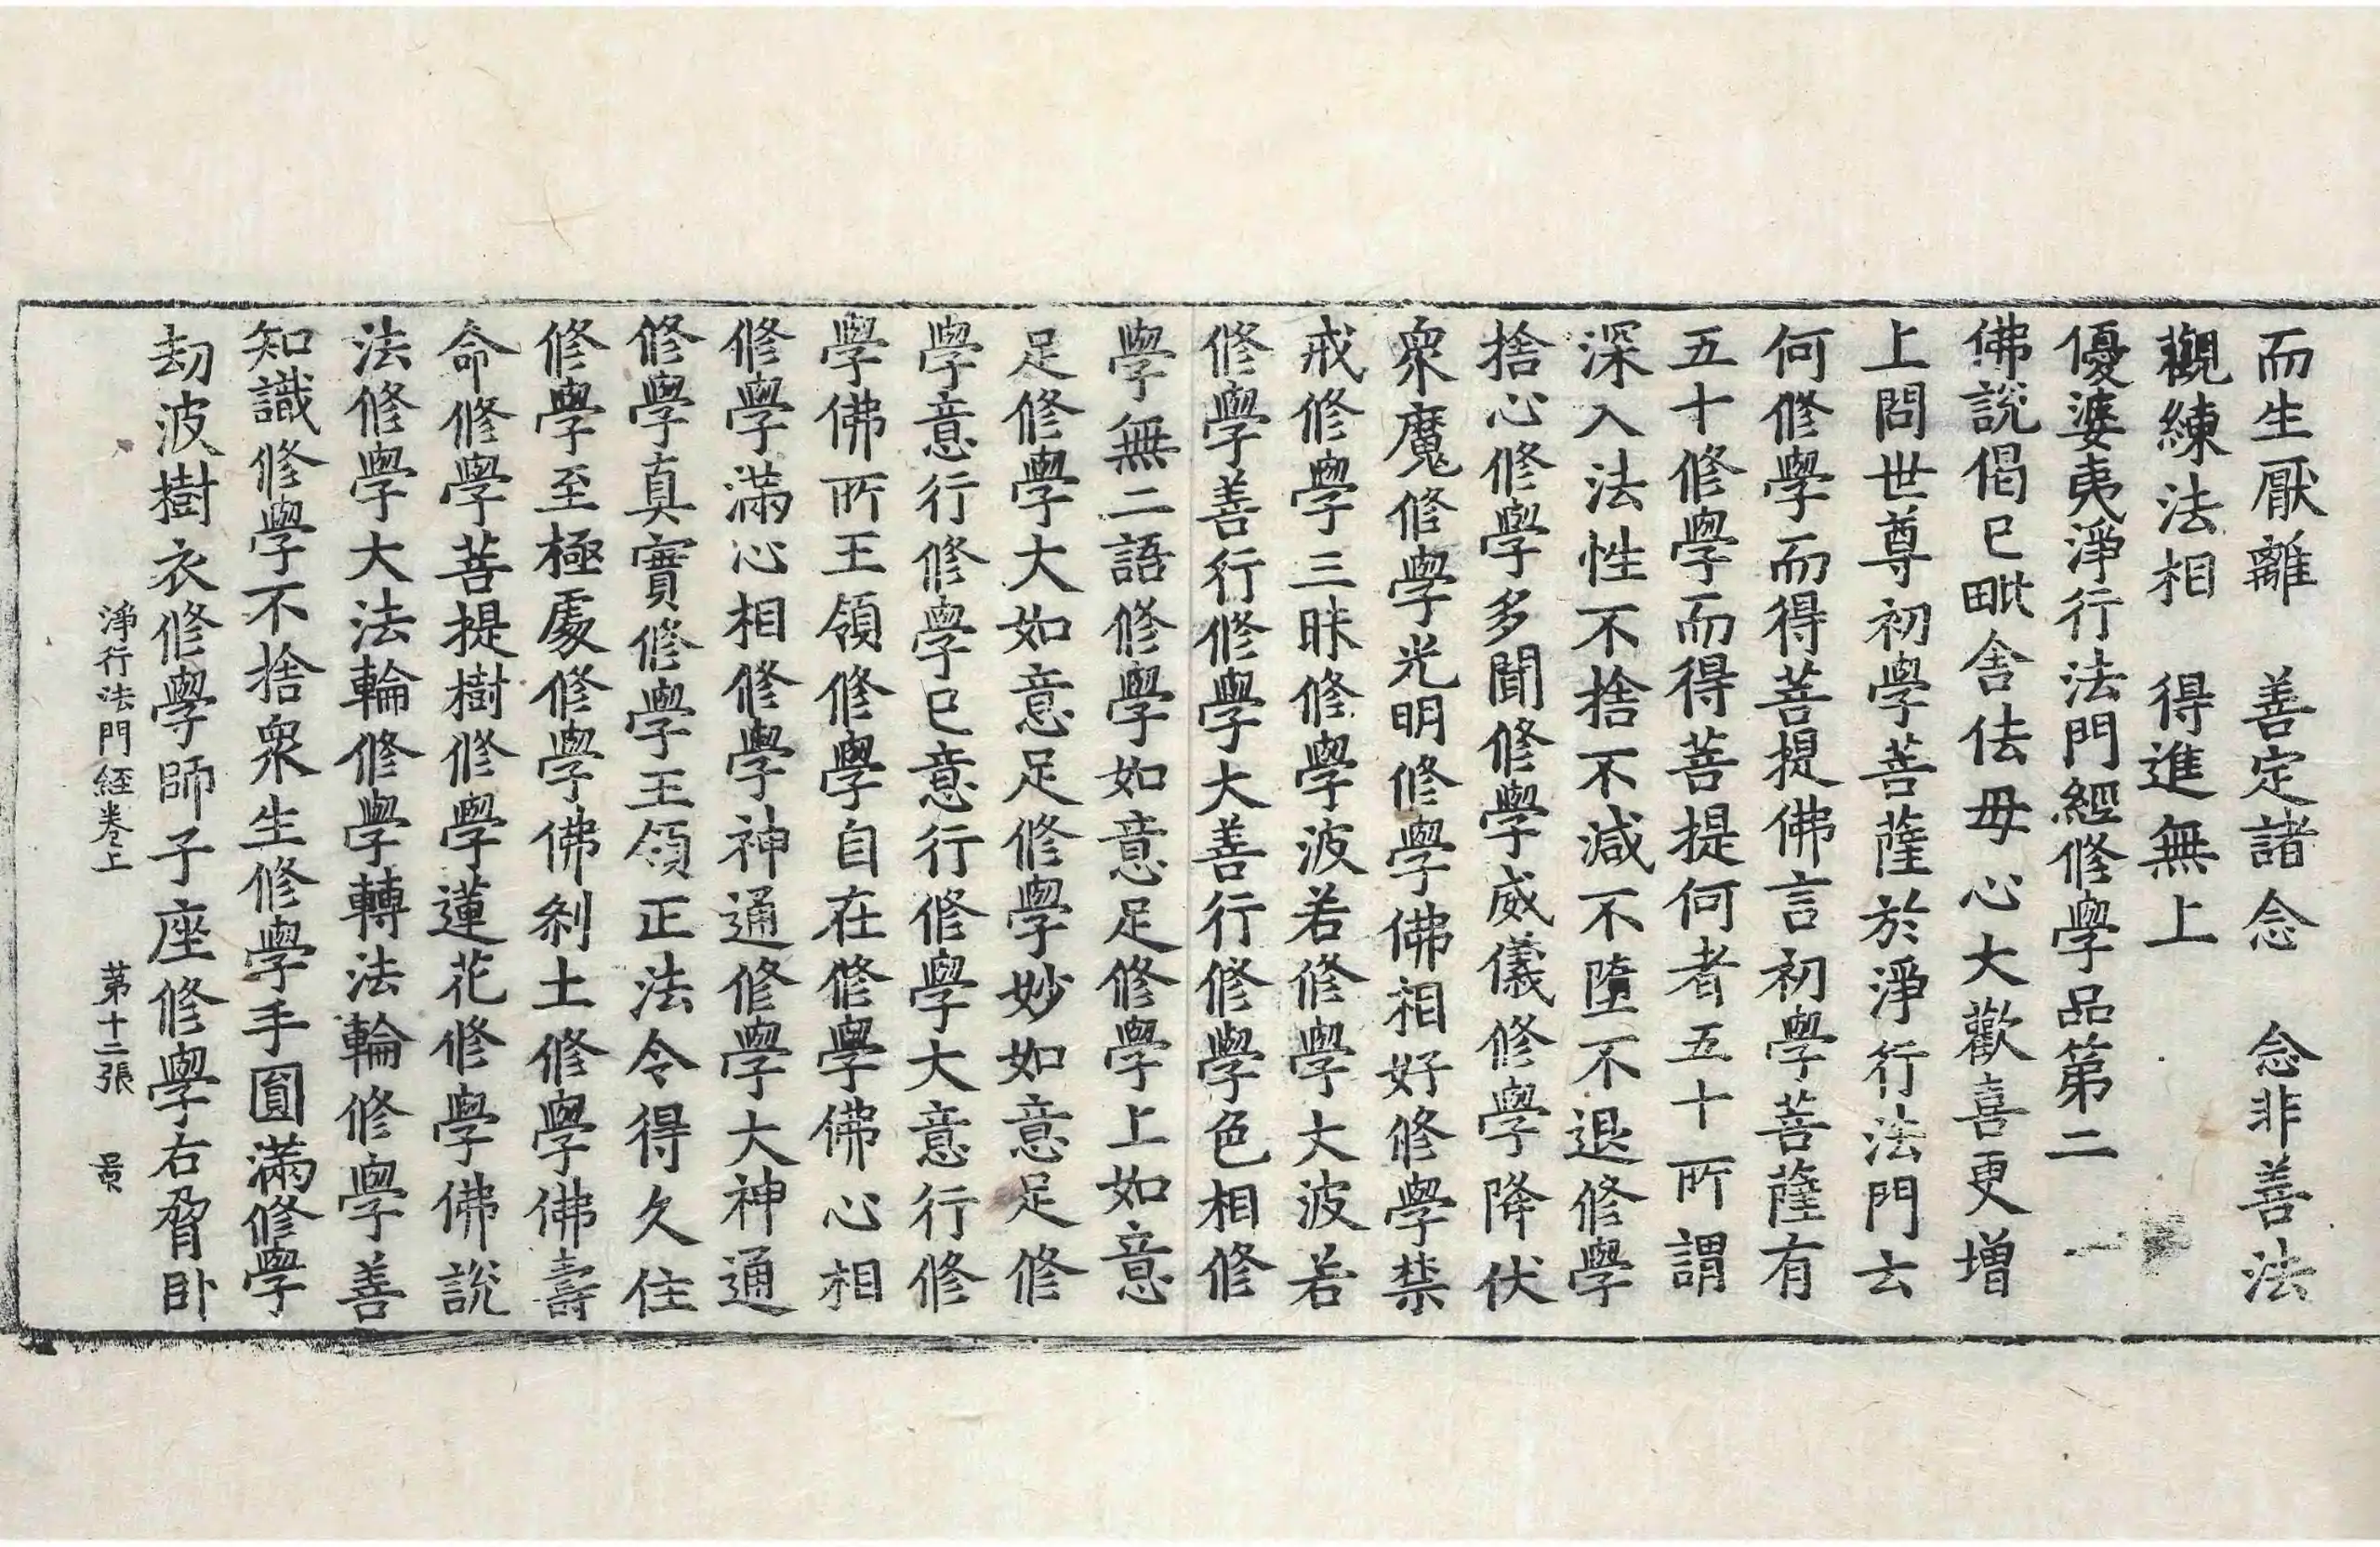 而生厭離　善定諸念　念非善法
觀練法相　得進無上
優婆夷淨行法門經修學品第二
佛說偈已毗舍佉毋心大歡喜更增
上問世尊初學菩薩於淨行法門云
何修學而得菩提佛言初學菩薩有
五十修學而得菩提何者五十所謂
深入法性不捨不減不墮不退修學
捨心修學多聞修學威儀修學降伏
衆魔修學光明修學佛相好修學禁
戒修學三昧修學波若修學大波若
修學善行修學大善行修學色相修
學無二語修學如意足修學上如意
足修學大如意足修學妙如意足修
學意行修學已意行修學大意行修
學佛所王領修學自在修學佛心相
修學滿心相修學神通修學大神通
修學真實修學王領正法令得久住
修學至極處修學佛剎土修學佛壽
命修學菩提樹修學蓮花修學佛說
法修學大法輪修學轉法輪修學善
知識修學不捨衆生修學手圓滿修學
劫波樹衣修學師子座修學右脅卧
淨行法門經卷上　第十二張　景